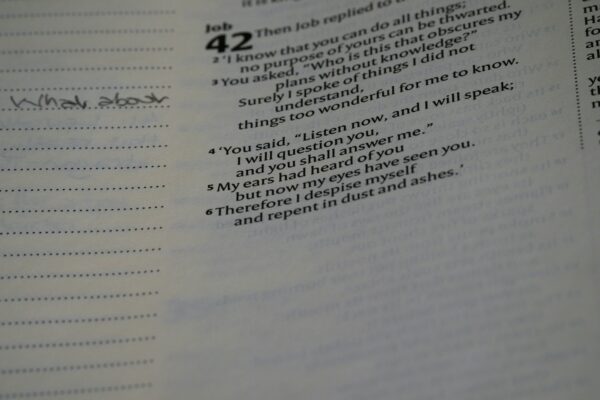 What about
Job
42 Then Job replied to
2 'I know that you can do all things;
no purpose of yours can be thwarted.
3 You asked, "Who is this that obscures my
plans without knowledge?"
Surely I spoke of things I did not
understand,
things too wonderful for me to know.
4 'You said, "Listen now, and I will speak;
I will question you,
and you shall answer me."
5 My ears had heard of you
but now my eyes have seen you.
6 Therefore I despise myself
and repent in dust and ashes.'